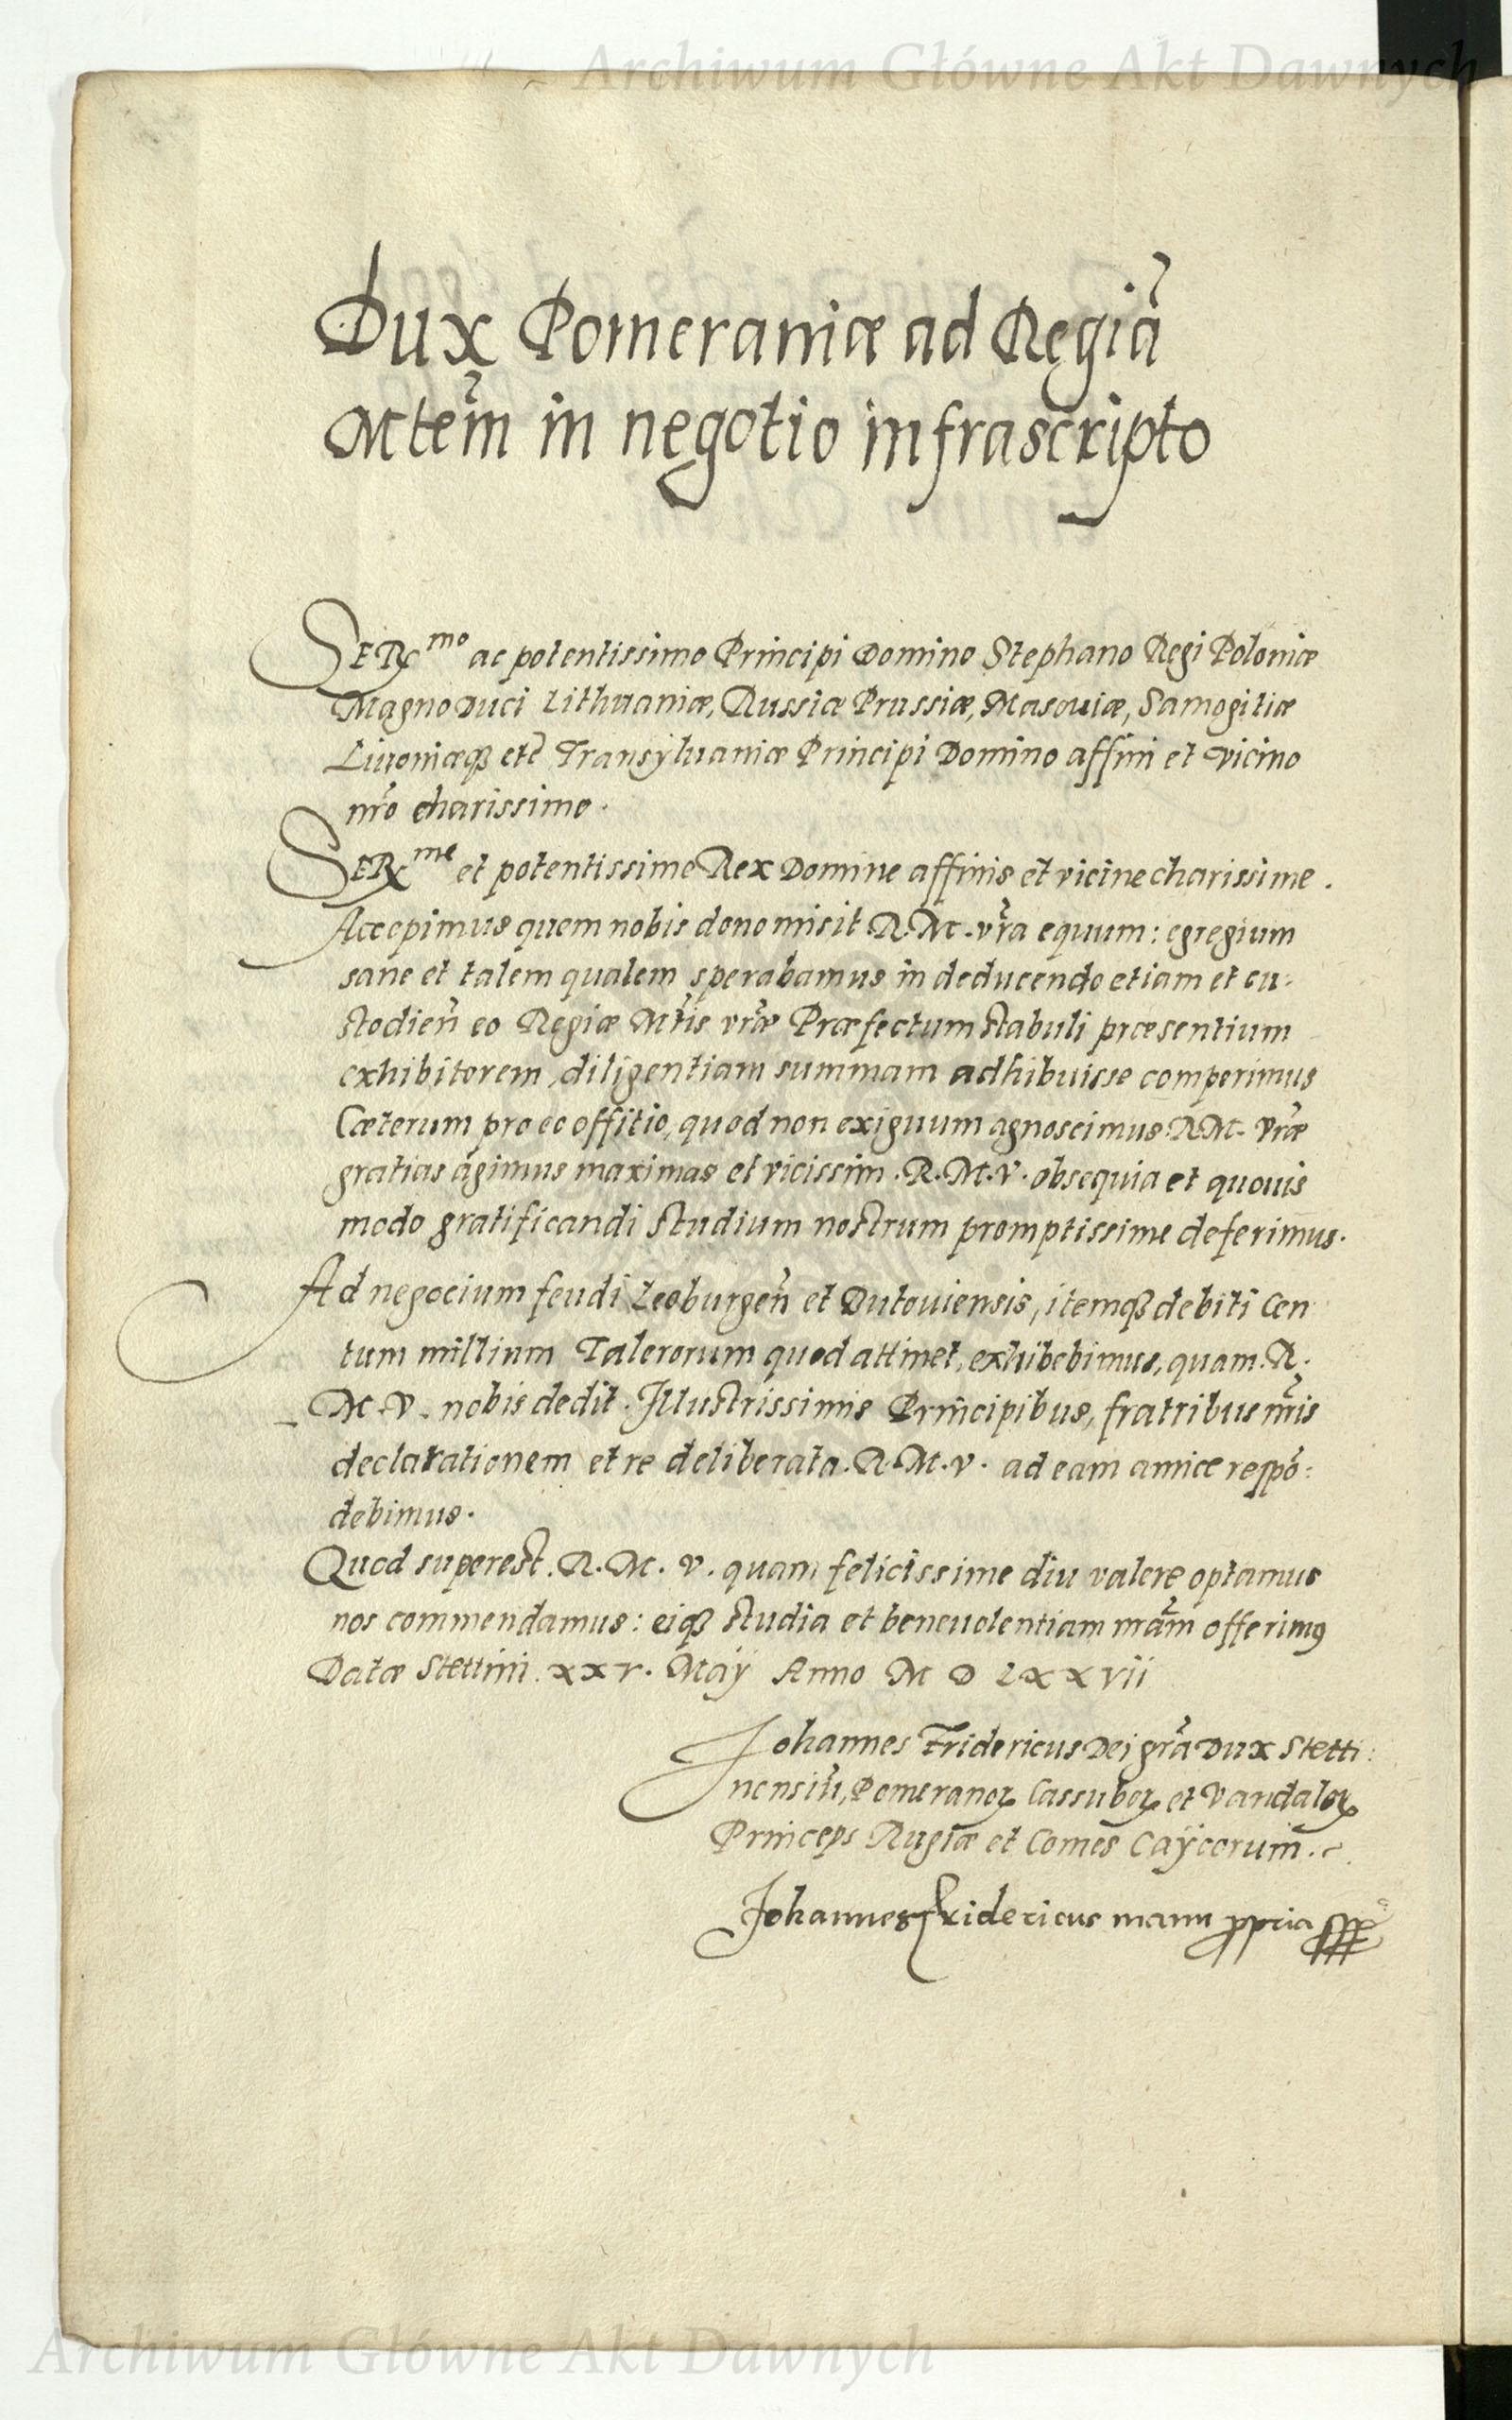 Archiwum Główne Akt Dawnych
Dux Pomeraniæ ad Regiã
Mtem̃ in negotio infrascripto
SERmo ac potentissimo Principi Domino Stephano Regi Poloniæ
Magno Duci Lithuaniæ, Russiæ Prussiæ, Masouiæ, Samogitiæ
Liuoniæq3 etc̃ Transyluaniæ Principi Domino affini et vicino
nr̃o charissimo.
SERme et potentissime Rex Domine affinis et vicine charissime.
Accepimus quem nobis dono misit R. M. vr̃a equum: egregium
sane et talem qualem sperabamus in deducendo etiam et cu-
stodien̄ eo Regiæ Mt̃is vr̃æ Præfectum stabuli præsentium
exhibitorem, diligentiam summam adhibuisse comperimus
Cæterum pro eo offitio, quod non exiguum agnoscimus. R. M. vr̃æ
gratias agimus maximas et vicissim. R. M. V. obsequia et quouis
modo gratificandi studium nostrum promptissime deferimus.
Ad negocium feudi Leoburgen̄ et Butouiensis, itemq3 debiti Cen
tum millium Talerorum quod attinet, exhibebimus, quam. R.
M. V. nobis dedit. Illustrissimis Principibus, fratribus nr̃is
declarationem et re deliberata. R. M. V. ad eam amice respõ:
debimus.
Quod superest. R. M. V. quam felicissime diu valere optamus
nos commendamus: eiq3 studia et beneuolentiam nr̃am offerimus
Datæ Stettini. xxv. Maÿ Anno M D LXXvii
Johannes Fridericus Dei gr̃a Dux Stetti:
nensiũ, Pomeranoꝝ Cassuboꝝ et Vandaloꝝ
Princeps Rugiæ et Comes Caÿcorum.
Johannes Fridericus manu ꝓpria
Archiwum Główne Akt Dawnych